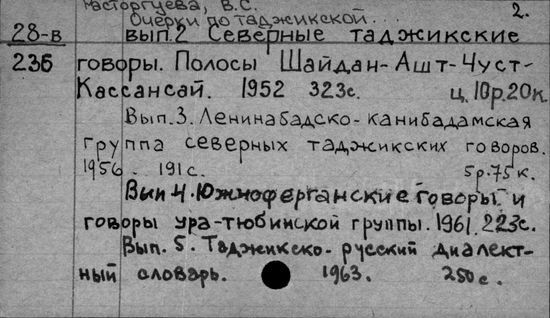 Расторгуева, В.С. 2.
Очерки по таджикской...
28-в вып.2 Северные таджикские
236 говоры. Полосы Шайдан-Ашт-Чуст-
Кассансай. 1952 323с. ц. 10р.20к.
Вып.3. Ленинабадско-канибадамская
группа северных таджикских говоров.
1956. 191с. 5р.75к.
Вып 4. Южноферганские говоры и
говоры ура-тюбинской группы. 1961. 223с.
Вып. 5. Таджикско-русский диалект-
ный словарь. 1963. 250с.